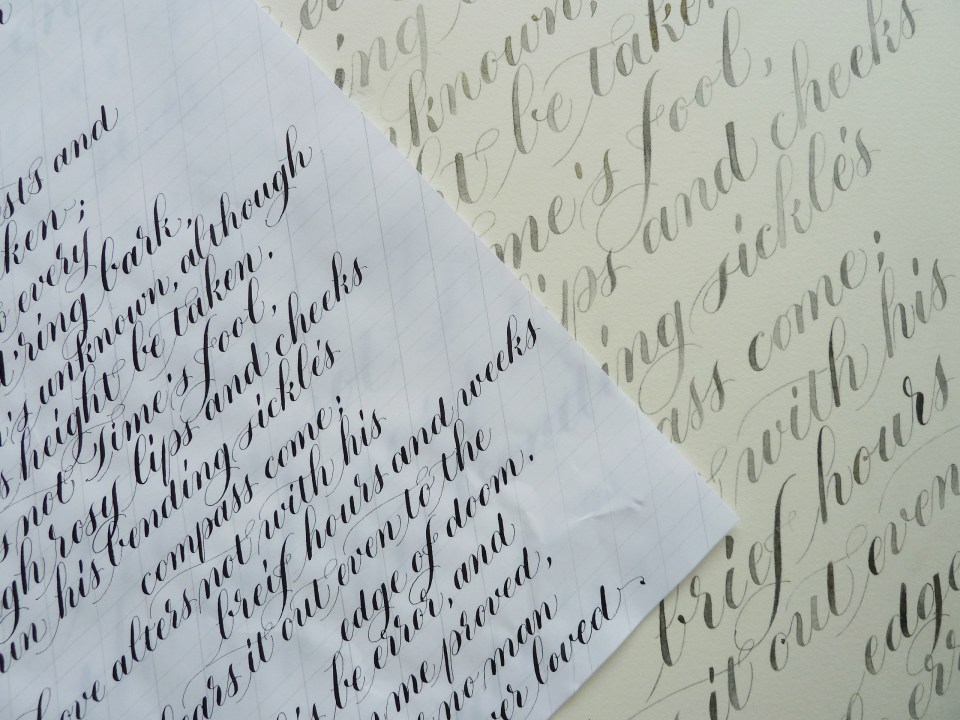 and
every
bark,
unknown, although
height be taken.
not Time's fool,
rosy lips and cheeks
his bending sickle's
compass come;
alters not with his
breif hours and weeks
it out even to the
edge of doom.
be error, and
me proved,
no man
loved.
ing
known,
be taken
fool,
and cheeks
sickle's
come;
with his
brief hours
it out even
edge